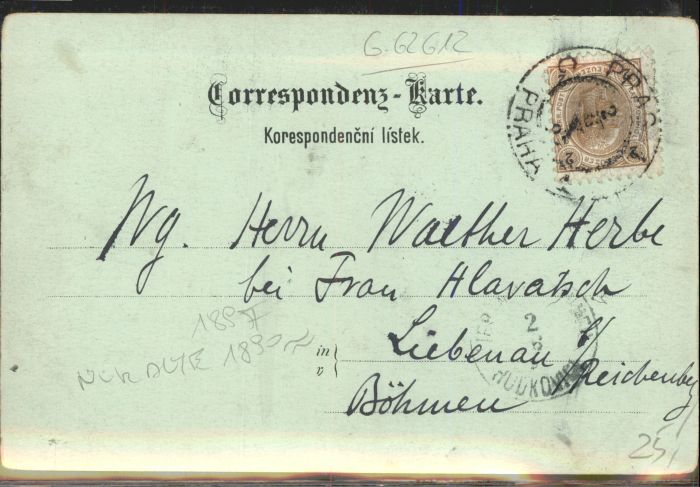 G.62612
Correspondenz-Karte.
Korespondenční lístek.
PRAG
PRAHA
Wg. Herrn Walther Herbe
bei Frau Hlavatsch
1897
in
v
Liebenau b/
HODKOVI
Reichenberg
Böhmen
25,